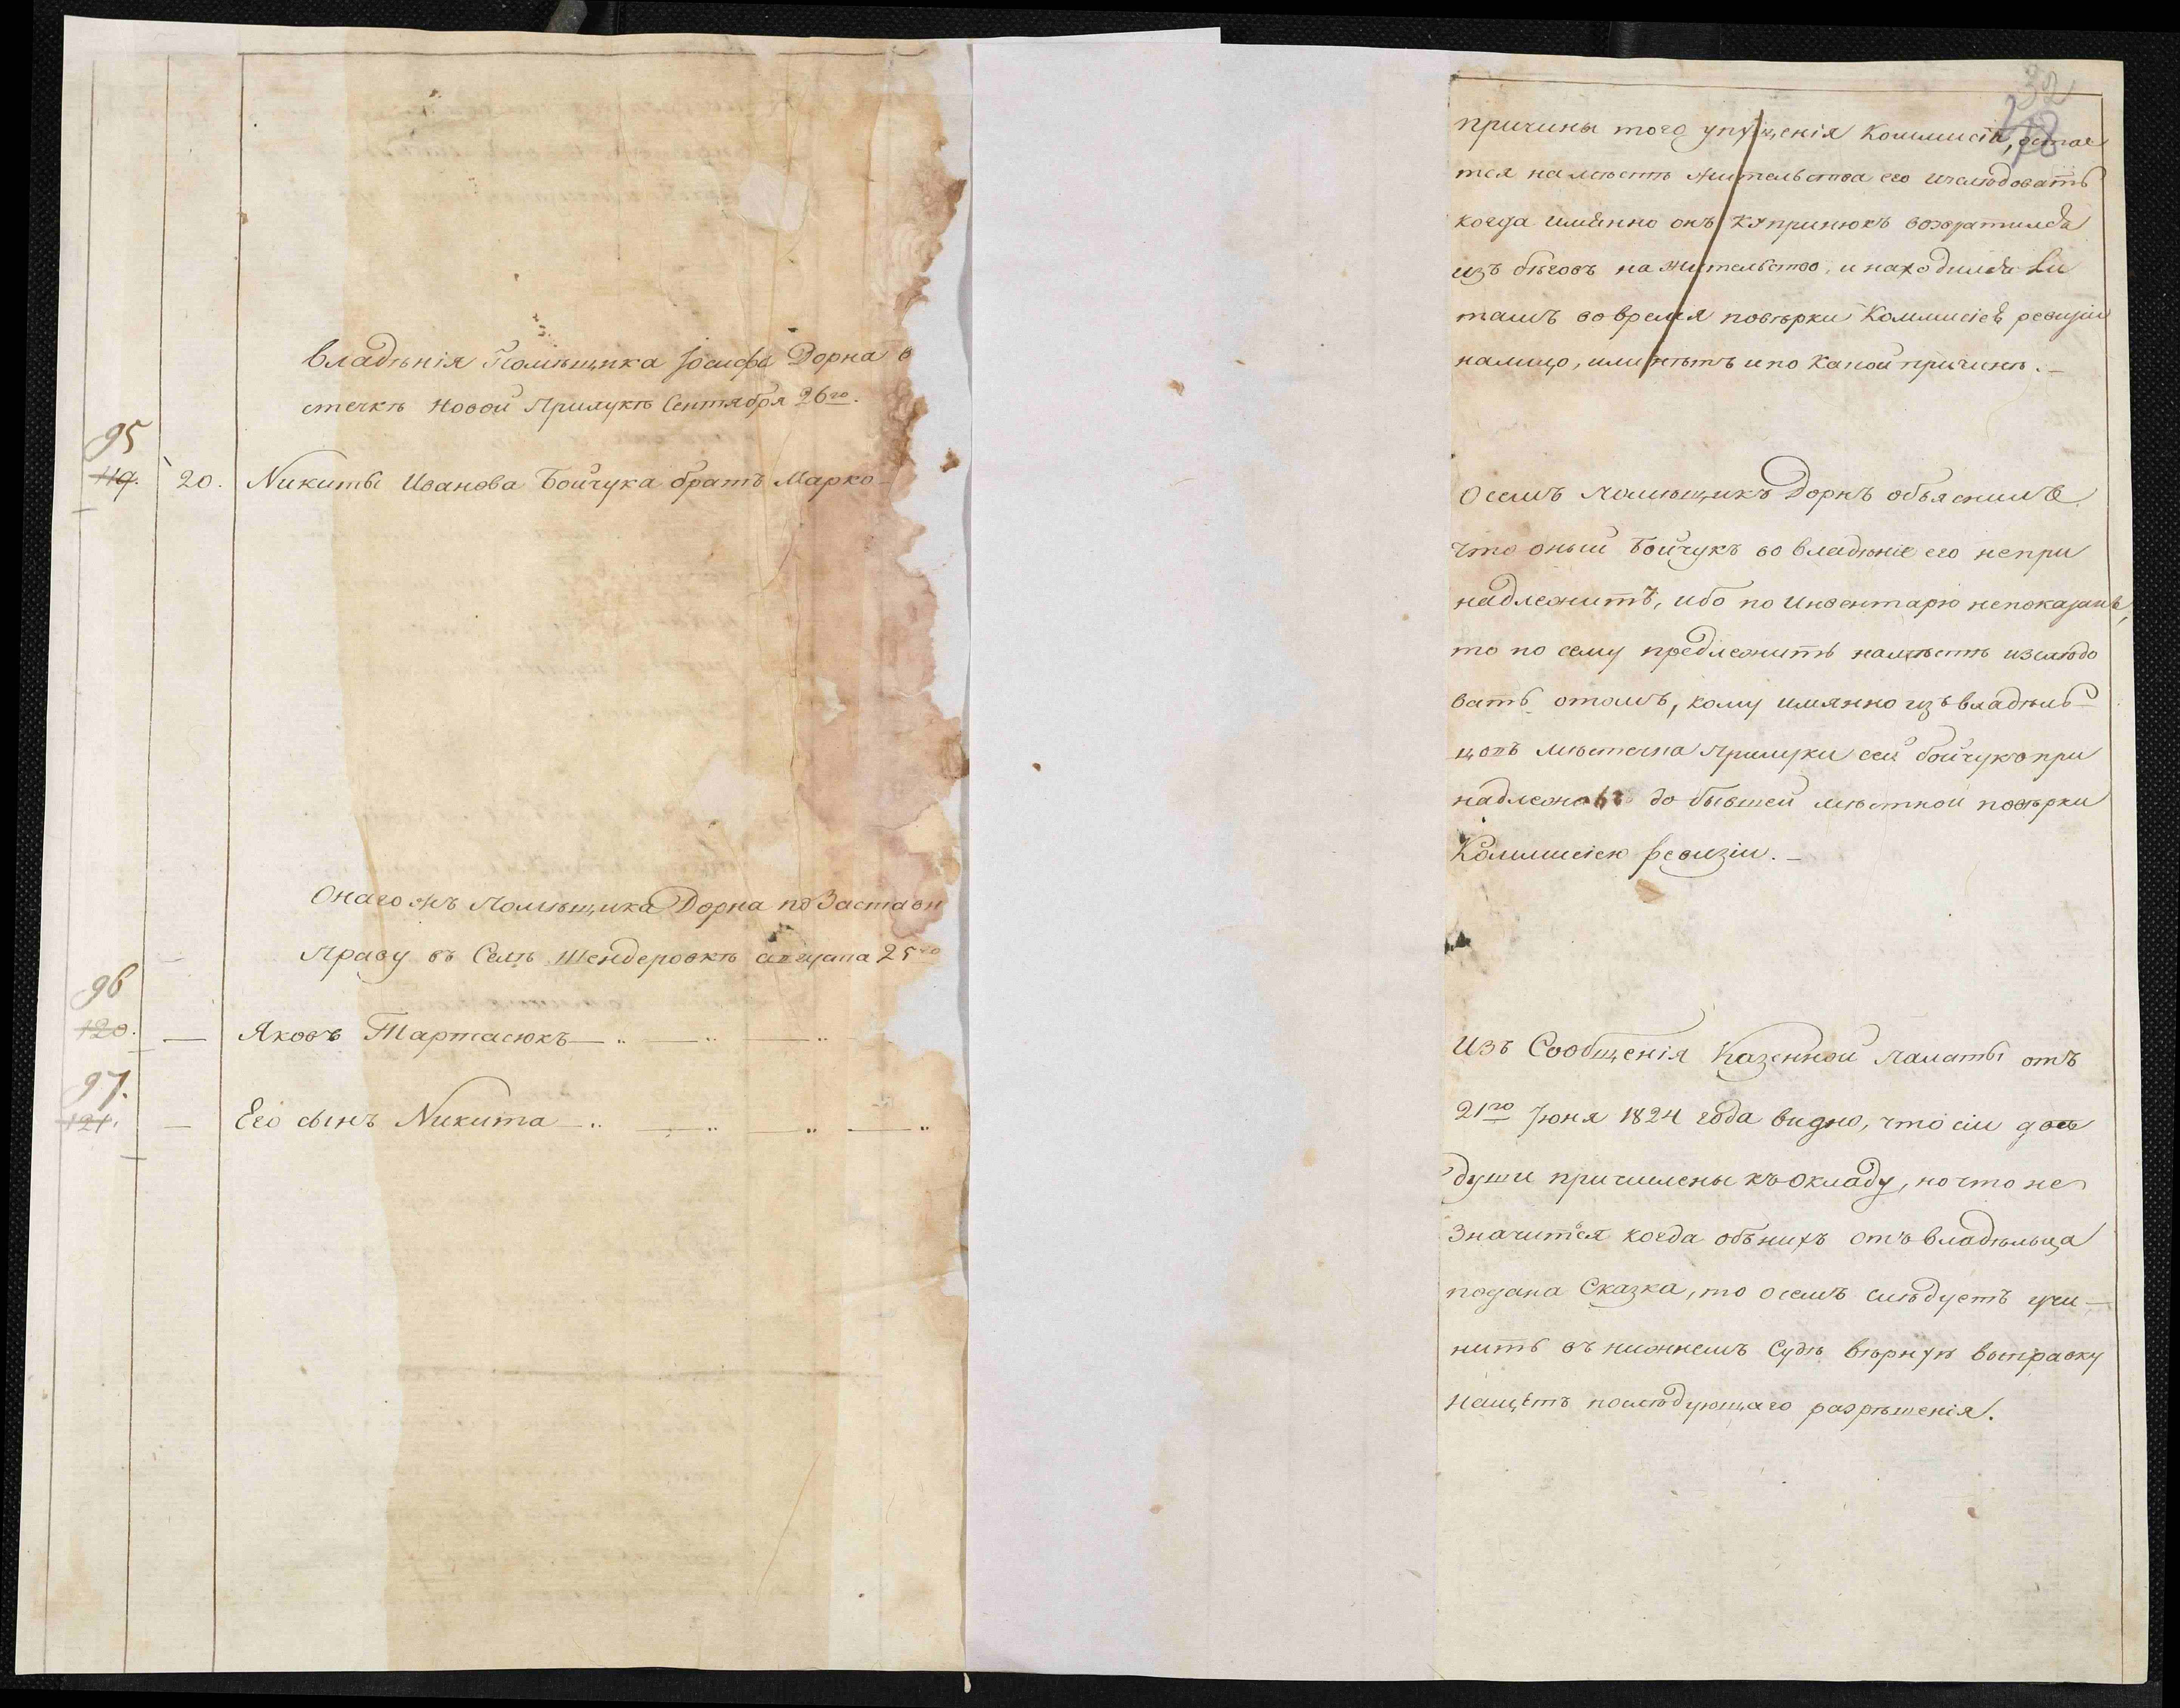 Владѣнія Помѣщика Іосифа Дорна в
стечкѣ Новой Прилукѣ Сентября 26го.
95
119. 20. Никиты Иванова Бойчука братъ Марко
Онаго жъ Помѣщика Дорна по Заставн
Праву въ Селѣ Шендеровкѣ августа 25го
96
120. — Яковъ Тартасюкъ
97.
121. — Его сынъ Никита
32
причины того упущенія Коммисіи, остае
тся на мѣстѣ жительства его изслѣдовать
когда имянно онъ Купринюкъ возвратился
изъ бѣговъ на жительство, и находился ли
тамъ во время повѣрки Коммисіей ревизіи
налицо, или нѣтъ и по какой причинѣ.
Осемъ Помѣщикъ Дорнъ объяснилъ
что оный Бойчукъ во владѣніе его непри
надлежитъ, ибо по Инвентарю непоказанъ,
то по сему предлежитъ намѣстѣ изслѣдо
вать отомъ, кому имянно изъ владѣль
цовъ мѣстечка Прилуки сей Бойчукъ при
надлежалъ до бывшей мѣстной повѣрки
Коммисіею ревизіи.
Изъ Сообщенія Казенной Палаты отъ
21го Іюня 1824 года видно, что сіи две
души причислены къ окладу, но что не
значится когда объ нихъ отъ владѣльца
подана Сказка, то осемъ слѣдуетъ учи—
нить въ нижнемъ Судѣ вѣрную выправку
нащетъ послѣдующаго разрѣшенія.